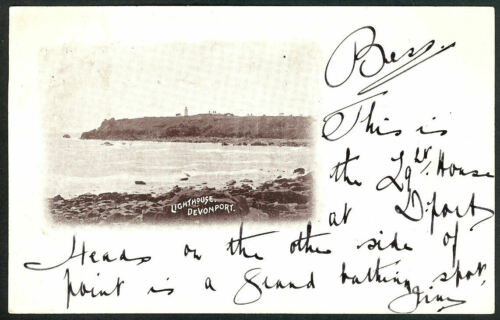 Bess.
This is
the Lgt. House
at D'port
LIGHTHOUSE,
DEVONPORT.
Heads on the other side of
point is a Grand bathing spot,
Jim